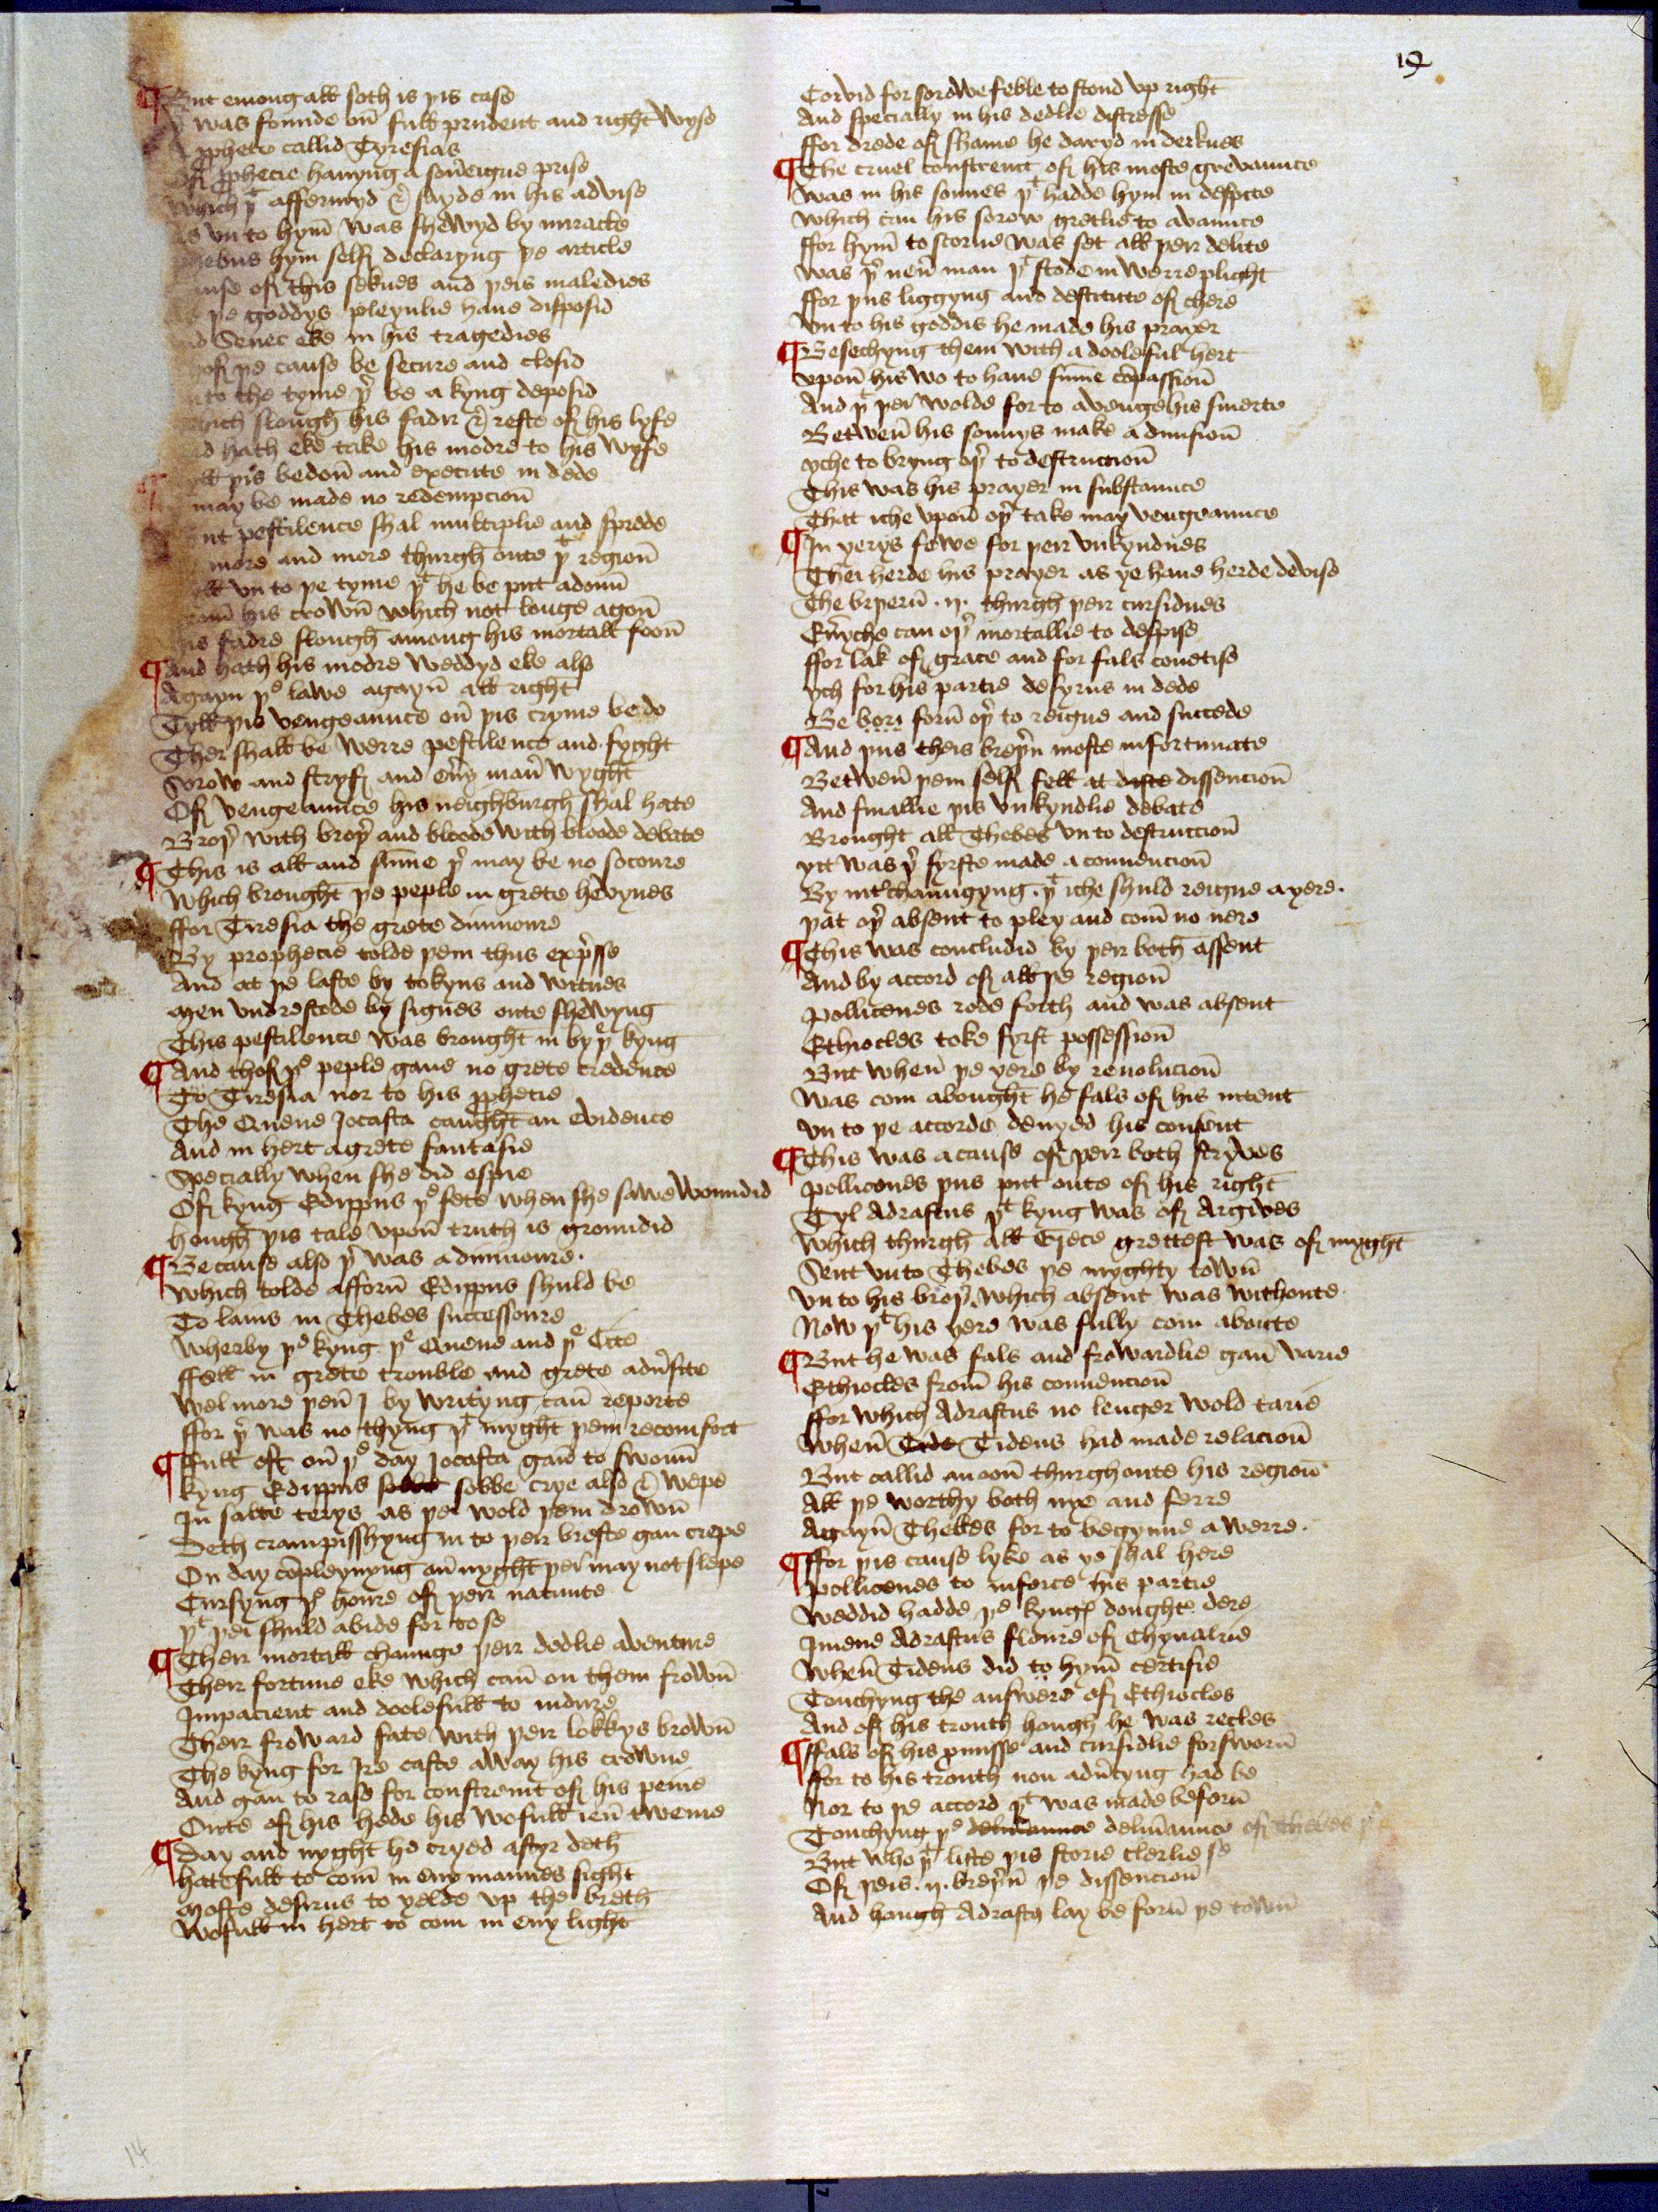 19
¶ But emong all soth is þis case
was founde on full prudent and right wyse
pphete callid Tyresias
Off pphecie hauyng a soueigne prise
which þt affermyd & sayde in his advise
vn to hym was shewyd by miracle
hym self declaryng þe article
off this seknes and þeis maledies
þe goddys pleynlie haue disposid
Senec eke in his tragedies
off þe cause be secure and closid
to the tyme þer be a kyng deposid
which slough his fadir & refte off his lyfe
hath eke take his modre to his wyfe
þis be don and execute in dede
may be made no redempcion
pestilence shal multiplie and sprede
more and more thurgh oute þt region
vn to þe tyme þt he be put adoun
his crown which not longe agon
fadre slough among his mortall foon
¶ And hath his modre weddyd eke also
Agayn þe lawe agayn all right
Tyll þis vengeaunce on þis cryme be do
Ther shall be werre pestilence and fyght
Sorow and stryf and euy man wyght
Off vengeaunce his neighburgh shal hate
Broþer with broþer and bloode with bloode debate
¶ This is all and summe þer may be no socoure
Which brought þe peple in grete hevynes
ffor Tiresia the grete diuinoure
By prophecie tolde þem thus expresse
And at þe laste by tokyns and witnes
Men vndrestode by signes oute shewyng
This pestilence was brought in by þe kyng
¶ And thof þe peple gaue no grete credence
To Tiresia nor to his pphecie
The Quene Jocasta caught an evidence
And in hert a grete fantasie
Specially when she did espie
Off kyng Edippus þe fete when she sawe woundid
hough þis tale vpon truth is groundid
¶ Because also þer was a diuinoure.
Which tolde afforn Edippus shuld be
To laius in Thebes successoure
Wherby þe kyng þe Quene and þe Cite
ffell in grete trouble and grete aduersite
Wel more þen I by writyng can reporte
ffor þer was no thyng þt myght þem recomfort
¶ ffull oft on þe day Jocasta gan to swoun
Kyng Edippus sobbe crye also & wepe
In salte terys as þei wold þem drown
Deth crampisshyng in to þeir breste gan crepe
On day compleynyng an nyght þei may not slepe
Cursyng þe houre off þeir natiuite
þt þei shuld abide for to se
¶ Their mortall chaunge þeir dedlie aventure
Their fortune eke which can on them frown
Impacient and doolefull to indure
Their froward fate with þeir lokkys brown
The kyng for Ire caste away his crowne
And gan to rase for constreint off his peine
Oute off his hede his wofull ien tweine
¶ Day and nyght he cryed aftyr deth
hatefull to com in eny mannes sight
Moste desirus to yelde vp the breth
Wofull in hert to com in eny light
Corvid for sorowe feble to stond vp right
And specially in his dedlie distresse
ffor drede off shame he daryd in derknes
¶ The cruel constreint off his moste grevaunce
Was in his sonnes þt hadde hym in despite
Which can his sorow gretlie to avaunce
ffor hym to scorne was set all þeir delite
Was þer neuer man þt stode in werre plight
ffor þus liggyng and destitute off chere
Vn to his goddis he made his prayer
¶ Besechyng them with a dooleful hert
Vpon his wo to haue summe compassion
And þt þei wolde for to avenge his smerte
Betwen his sonnys make a diuision
yche to bryng oþer to destruccion
This was his prayer in substaunce
That iche vpon oþer take may vengeaunce
¶ In yerys fewe for þeir vnkyndnes
Thei herde his prayer as ye haue herde devise
The breþern .ij. thurgh þeir cursidnes
Eueryche can oþer mortallie to despise
ffor lak off grace and for fals couetise
ych for his partie desyrus in dede
Be bori forn oþer to reigne and succede
¶ And þus theis breþern moste infortunate
Betwen þem self fell at diste dissencion
And finallie þis vnkyndlie debate
Brought all Thebes vn to destruccion
ytt was þer fyrste made a conuencion
By interchaungyng þt iche shuld reigne a yere.
þat oþer absent to pley and com no nere
¶ This was concludid by þeir both assent
And by accord off all þe region
Pollicenes rode forth and was absent
Ethiocles toke fyrst possession
But when þe yere by reuolucion
Was com abought he fals off his intent
Vn to þe accorde denyed his consent
¶ This was a cause off þeir both stryves
Pollicenes þus put oute off his right
Tyl Adrastus þt kyng was off Argives
Which thurgh all Grece grettest was off myght
Sent vnto Thebes þe myghty town
Vn to his broþer which absent was withoute
Now þt his yere was fully com aboute
¶ But he was fals and frowardlie gan varie
Ethiocles from his conuencion
ffor which Adrastus no lenger wold tarie
When Tide Tideus had made relacion
But callid an oon thurghoute his region
All þe worthy both nye and ferre
Agayn Thebes for to begynne a werre.
¶ ffor þis cause lyke as ye shal here
Pollicenes to inforce his partie
Weddid hadde þe kynges doughter dere
I mene Adrastus floure off Chyualrie
When Tideus did to hym certifie
Touchyng the answere off Ethiocles
And off his trouth hough he was recles
¶ ffals off his pmisse and cursidlie forsworn
ffor to his trouth non aduertyng had he
Nor to þe accord þt was made beforn
Touchyng þe deliuaunce deliuaunce off thebes
But who þt liste þis storie clerlie se
Off þeis .ij. breþern þe dissencion
And hough Adrastus lay be forn þe town
14